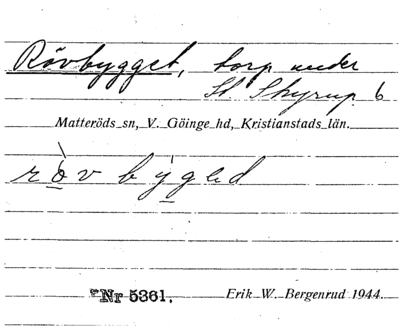 Rövbygget, torp under
St Skyrup 6
Matteröds sn, V. Göinge hd, Kristianstads län.
Nr 5361. Erik W. Bergenrud 1944.